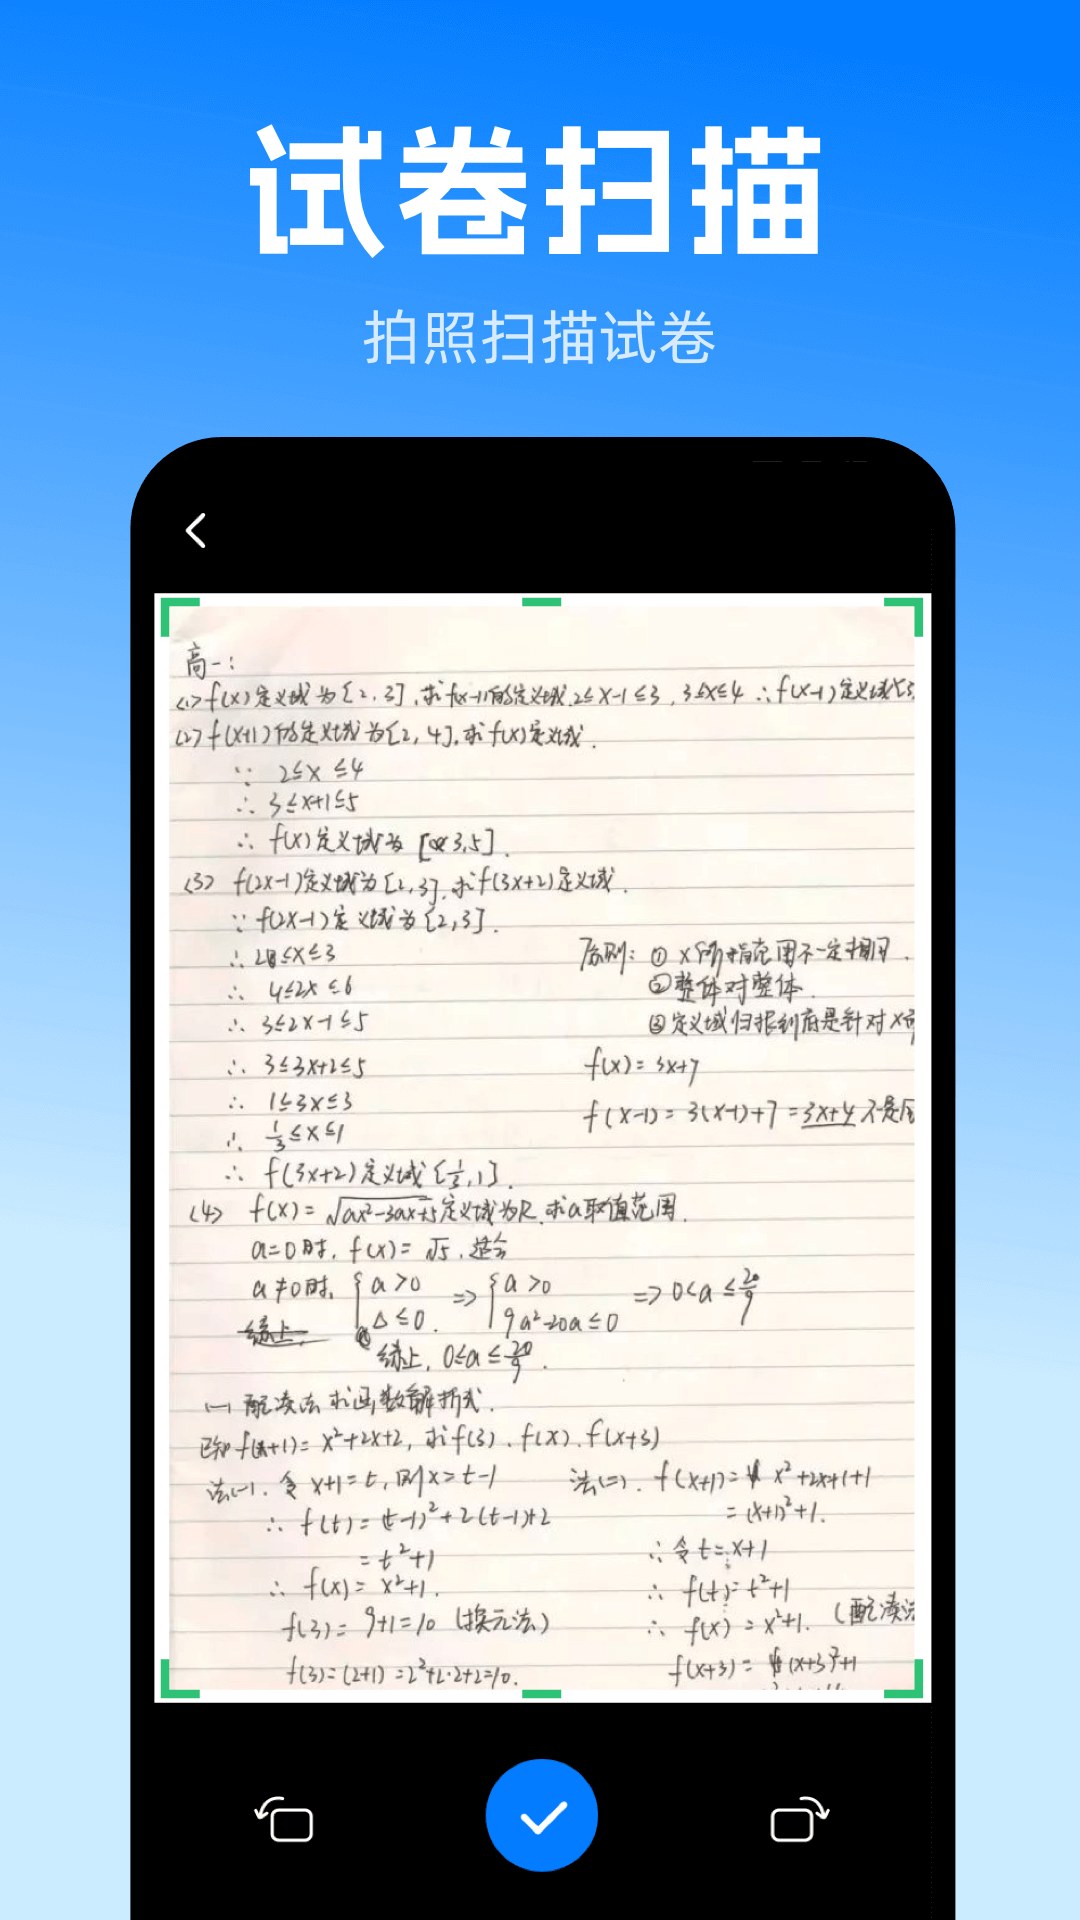 试卷扫描
拍照扫描试卷
高一:
(1) f(x)定义域为[2,3],求f(x-1)的定义域.2≤x-1≤3, 3≤x≤4 ∴f(x-1)定义域[3,
(2) f(x+1)的定义域为[2,4],求f(x)定义域.
∵ 2≤x≤4
∴ 3≤x+1≤5
∴ f(x)定义域为 [3,5].
(3) f(2x-1)定义域为[2,3],求f(3x+2)定义域.
∵ f(2x-1)定义域为[2,3].
∴ 2≤x≤3
∴ 4≤2x≤6
∴ 3≤2x-1≤5
∴ 3≤3x+2≤5
∴ 1≤3x≤3
∴ 1/3≤x≤1
∴ f(3x+2)定义域[1/3,1].
原则: ① x所指范围不一定相同.
②整体对整体.
③定义域归根到底是针对x而
f(x)=3x+7
f(x-1)=3(x-1)+7=3x+4 不是原
(4) f(x)=√ax²-3ax+5定义域为R,求a取值范围.
a=0时, f(x)=√5, 适合
a≠0时, {a>0 => {a>0 => 0<a≤20/9
Δ≤0. 9a²-20a≤0
综上,
综上, 0≤a≤20/9.
(一) 配凑法求函数解析式.
已知f(x+1)=x²+2x+2, 求f(3), f(x), f(x+3)
法(一). 令x+1=t, 则x=t-1
∴ f(t)=(t-1)²+2(t-1)+2
=t²+1
∴ f(x)=x²+1.
f(3)=9+1=10 (换元法)
f(3)=(2+1)=2²+2·2+2=10.
法(二). f(x+1)=x²+2x+1+1
=(x+1)²+1.
∴ 令t=x+1
∴ f(t)=t²+1
∴ f(x)=x²+1. (配凑法
f(x+3)=(x+3)²+1